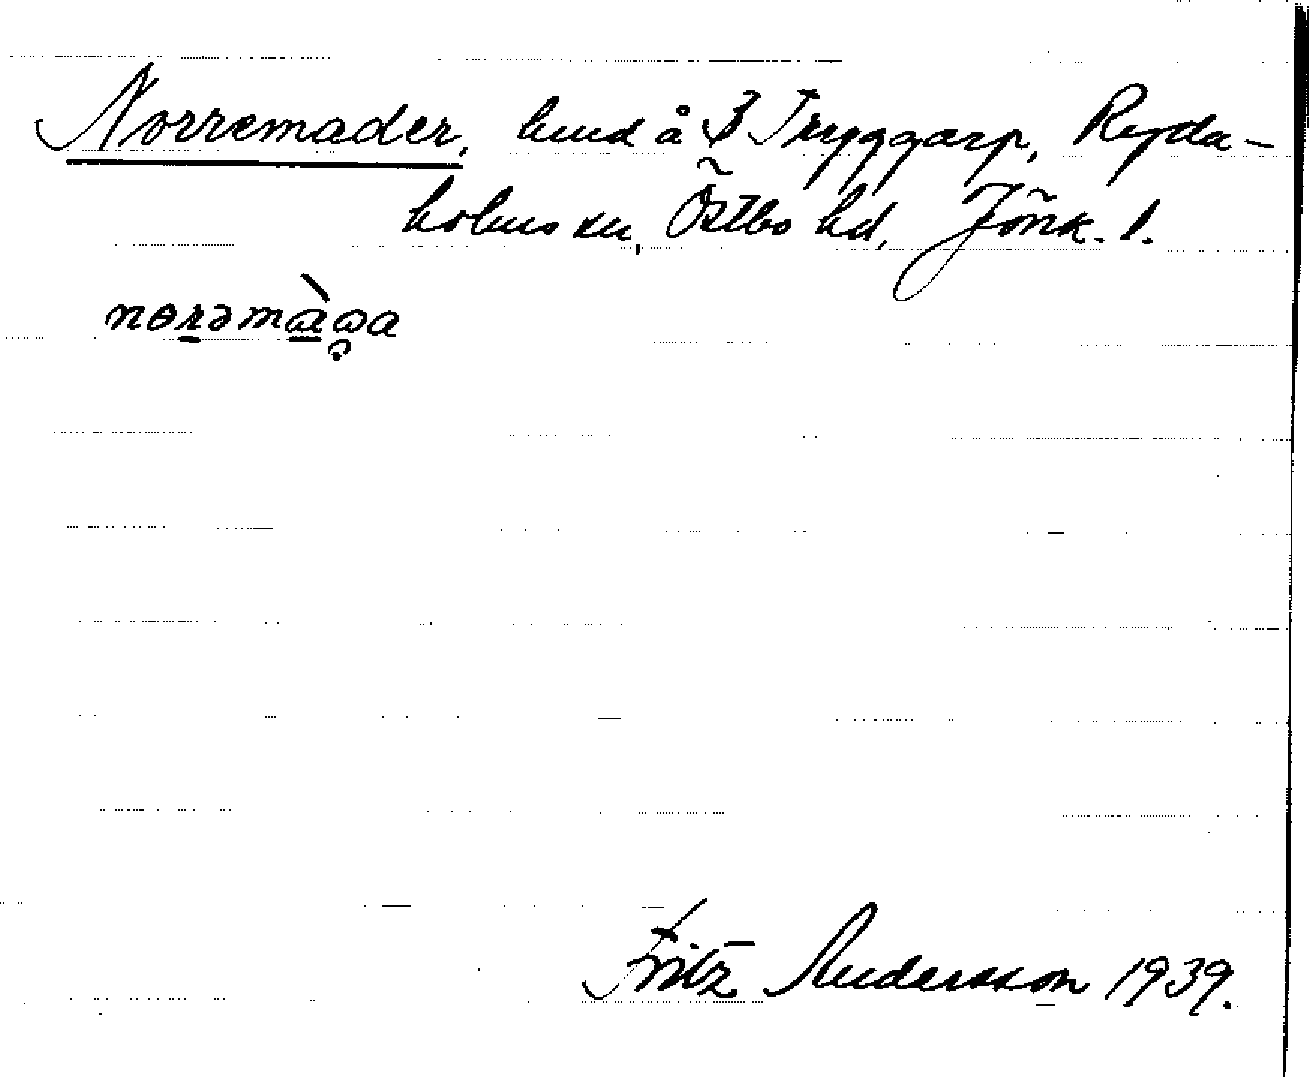 Norremader, lund å Tryggarp, Ryda-
holms sn, Östbo hd, Jönk. l.
Fritz Andersson 1939.